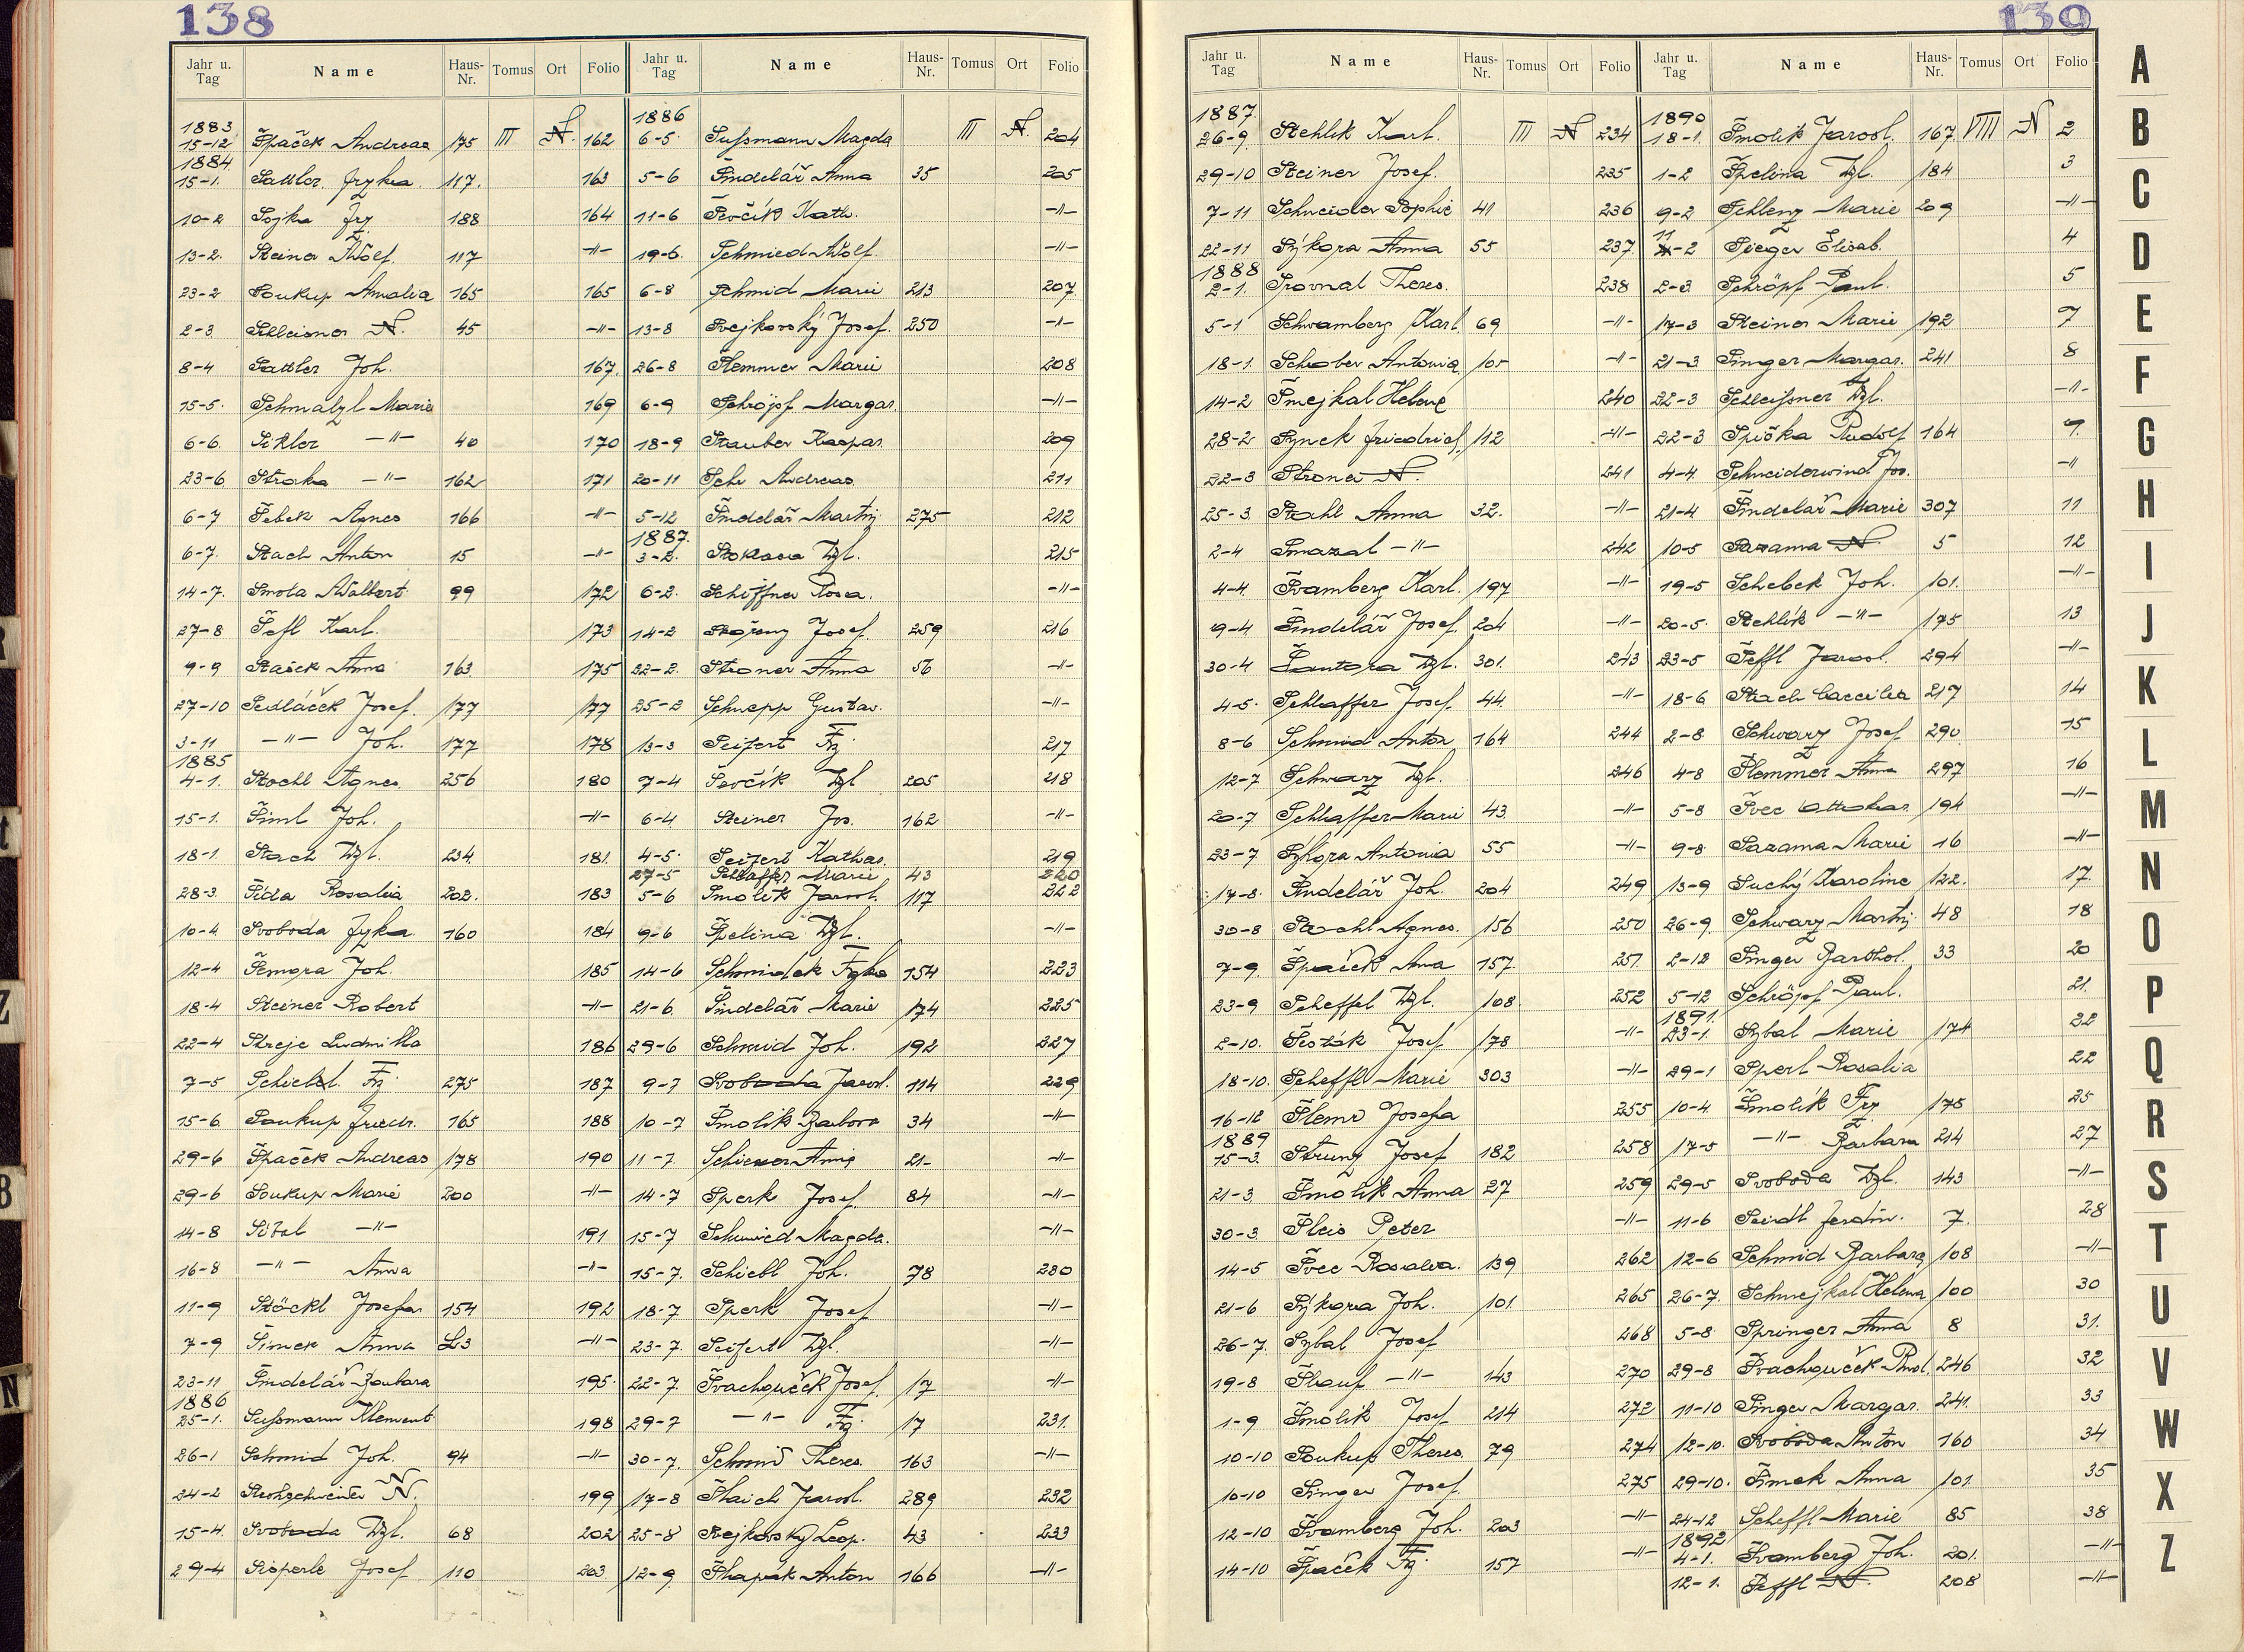 138
Jahr u. Tag Name Haus-Nr. Tomus Ort Folio
1883
15-12 Špaček Andreas 175 III N. 162
1884
15-1. Sattler Fzka 117. 163
10-2 Sojka Frz 188 164
13-2. Steiner Adolf 117 -"-
23-2 Soukup Amalia 165 165
2-3 Schleisner N. 45 -"-
8-4 Sattler Joh. 167.
15-5. Schmalzl Marie 169
6-6. Sikler -"- 40 170
23-6 Straka -"- 162 171
6-7 Šebek Agnes 166 -"-
6-7. Stach Anton 15 -"-
14-7. Smola Adalbert 99 172
27-8 Šefl Karl. 173
9-9 Stašek Anna 163. 175
27-10 Sedláček Josef. 177 177
3-11 -"- Joh. 177 178
1885
4-1. Stochl Agnes 256 180
15-1. Šiml Joh. -"-
18-1. Stach Wzl. 234 181.
28-3. Šída Rosalia 202. 183
10-4 Svoboda Fzka 160 184
12-4 Šemora Joh. 185
18-4 Steiner Robert -"-
22-4 Streje Ludmilla 186
7-5 Schiebl. Frz. 275 187
15-6. Soukup Friedr. 165 188
29-6 Špaček Andreas 178 190
29-6 Soukup Marie 200 -"-
14-8 -"- 191
16-8 -"- Anna -"-
11-9 Stöckl Josefa 154 192
7-9 Šimek Anna -"-
23-11 Šindelář Barbara 195.
1886
25-1. Sußmann Klement 198
26-1 Schmid Joh. 94 -"-
24-2 N. 199
15-4. Svoboda Wzl. 68 202
29-4 Sisperle Josef 110 203
Jahr u. Tag Name Haus-Nr. Tomus Ort Folio
1886
6-5. Sußmann Magda III N. 204
5-6 Šindelář Anna 35 205
11-6 Ševčík Kath. -"-
19-6. Schmied Adolf. -"-
6-8 Schmid Marie 213 207
13-8 Svejkovský Josef. 250 -"-
26-8 Šlemmer Marie 208
6-9 Schröpf Margar. -"-
18-9 Stauber Kaspar 209
20-11 Andreas 211
5-12 Šindelář Martin 275 212
1887.
3-2. Stokasa Wzl. 215
6-2. Schiffner Rosa. -"-
14-2 Josef 259 216
22-2. Stroner Anna 56 -"-
25-2 Schnepp Gustav. -"-
13-3 Seifert Frz. 217
7-4 Ševčík Wzl 205 218
6-4. Steiner Jos. 162 -"-
4-5. Seifert Kathar. 219
27-5 Schlaffer Marie 43 220
5-6 Smolík Jarosl. 117 222
9-6 Špelina Wzl. -"-
14-6 Schmidek Fzka 154 223
21-6. Šindelář Marie 174 225
29-6 Schmid Joh. 192 227
9-7 Svoboda Jarosl. 114 229
10-7 Smolík Barbora 34 -"-
11-7. Anna 21- -"-
14-7 Sperk Josef 84 -"-
15-7 Schmied Magda. -"-
15-7. Schiebl Joh. 78 230
18-7 Sperk Josef -"-
23-7. Seifert Wzl. -"-
22-7. Svachouček Josef. 17 -"-
29-7 -"- Frz. 17 231.
30-7. Schmid Theres. 163 -"-
17-8 Šlaich Jarosl. 289 232
25-8 Svejkovský Leop. 43 233
12-9 Šlapák Anton 166 -"-
139
Jahr u. Tag Name Haus-Nr. Tomus Ort Folio
1887.
26-9. Stehlík Karl. III N 234
29-10 Steiner Josef. 235
7-11 Schneider Sophie 41 236
22-11 Sýkora Anna 55 237
1888
2-1. Srovnal Theres. 238
5-1 Schwamberg Karl. 69 -"-
18-1. Schober Antonia -"-
14-2 Šmejkal Helene 240
28-2 Synek Friedrich. 112 -"-
22-3 Stroner N. 241
25-3. Stahl Anna 32. -"-
2-4 Smazal -"- 242
4-4. Švamberg Karl. 197 -"-
9-4 Šindelář Josef. 204 -"-
30-4 Šantora Wzl. 301. 243
4-5. Schlaffer Josef. 44. -"-
8-6 Schmid Anton 164 244
12-7 Schwarz Wzl. 246
20-7 Schlaffer Marie 43. -"-
23-7 Sýkora Antonia 55 -"-
17-8. Šindelář Joh. 204 249
30-8 Stachl Agnes. 156 250
7-9. Špaček Anna 157. 251
23-9 Scheffel Wzl. 108. 252
2-10. Šesták Josef 178 -"-
18-10. Scheffl Marie 303 -"-
16-12 Šlemr Josefa 255
1889
15-3. Strunz Josef 182 258
21-3 Smolík Anna 27 259
30-3. Šleis Peter -"-
14-5 Švec Rosalia. 139 262
21-6 Sýkora Joh. 101. 265
26-7. Sybal Josef 268
19-8 Šlauf -"- 143 270
1-9 Smolík Josef 214 272
10-10 Soukup Theres. 79 274
10-10 Singer Josef 275
12-10 Švamberg Joh. 203 -"-
14-10 Špaček Frz. 157 -"-
Jahr u. Tag Name Haus-Nr. Tomus Ort Folio
1890
18-1. Smolík Jarosl. 167. VIII N 2
1-2 Špelina Wzl. 184 3
9-2 Schlenz Marie 209 -"-
11-2 Sieger Elisab. 4
2-3. Schröpf Paul. 5
17-3 Steiner Marie 192 7
21-3. Singer Margar. 241 8
22-3 Schleißner Wzl. -"-
22-3 Spička Rudolf 164 9.
4-4. Schneiderwind Jos. -"
21-4 Šindelář Marie 307 11
10-5 Sazama N. 5 12
19-5 Schebek Joh. 101. -"-
20-5. Stehlík -"- 175 13
23-5 Šeffl Jarosl. 294 -"-
18-6 Stach Caecilia 217 14
2-8 Schwarz Josef 290 15
4-8 Šlemmer Anna 297 16
5-8 Švec Ottokar 194 -"-
9-8 Sazama Marie 16 -"-
13-9 Suchý Karoline 122. 17.
26-9. Schwarz Martin 48 18
2-12 Singer Barthol. 33 20
5-12 Schröpf Paul. 21.
1891.
23-1. Sybal Marie 174 22
29-1 Sperl Rosalia 22
10-4 Smolík Frz 178 25
17-5 -"- Barbara 214 27
29-5 Svoboda Wzl. 143 -"-
11-6 Seidl Ferdin. 7. 28
12-6 Schmid Barbara 108 -"-
26-7. Schmejkal Helena 100 30
5-8 Springer Anna 8 31.
29-8 Svachouček 246 32
11-10 Singer Margar. 241. 33
12-10. Svoboda Anton 160 34
29-10. Šimek Anna 101. 35
24-12 Scheffl Marie 85 38
1892
4-1. Švamberg Joh. 201. -"-
12-1. Šeffl N. 208 -"-
A
B
C
D
E
F
G
H
I
J
K
L
M
N
O
P
Q
R
S
T
U
V
W
X
Z